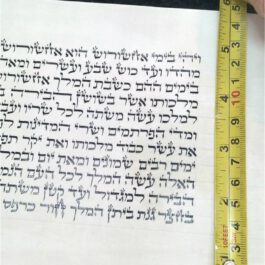 ויהי בימי אחשורוש הוא אחשורוש
מהדו ועד כוש שבע ועשרים ומאה
בימים ההם כשבת המלך
מלכותו אשר בשושן הבירה
למלכו עשה משתה לכל שריו
ומדי הפרתמים ושרי המדינות
את עשר כבוד מלכותו ואת יקר
ימים רבים שמונים ומאת יום
האלה עשה המלך לכל העם
הבירה למגדול ועד קטן משתה
בחצר גנת ביתן המלך חור כרפס
10
10FEET